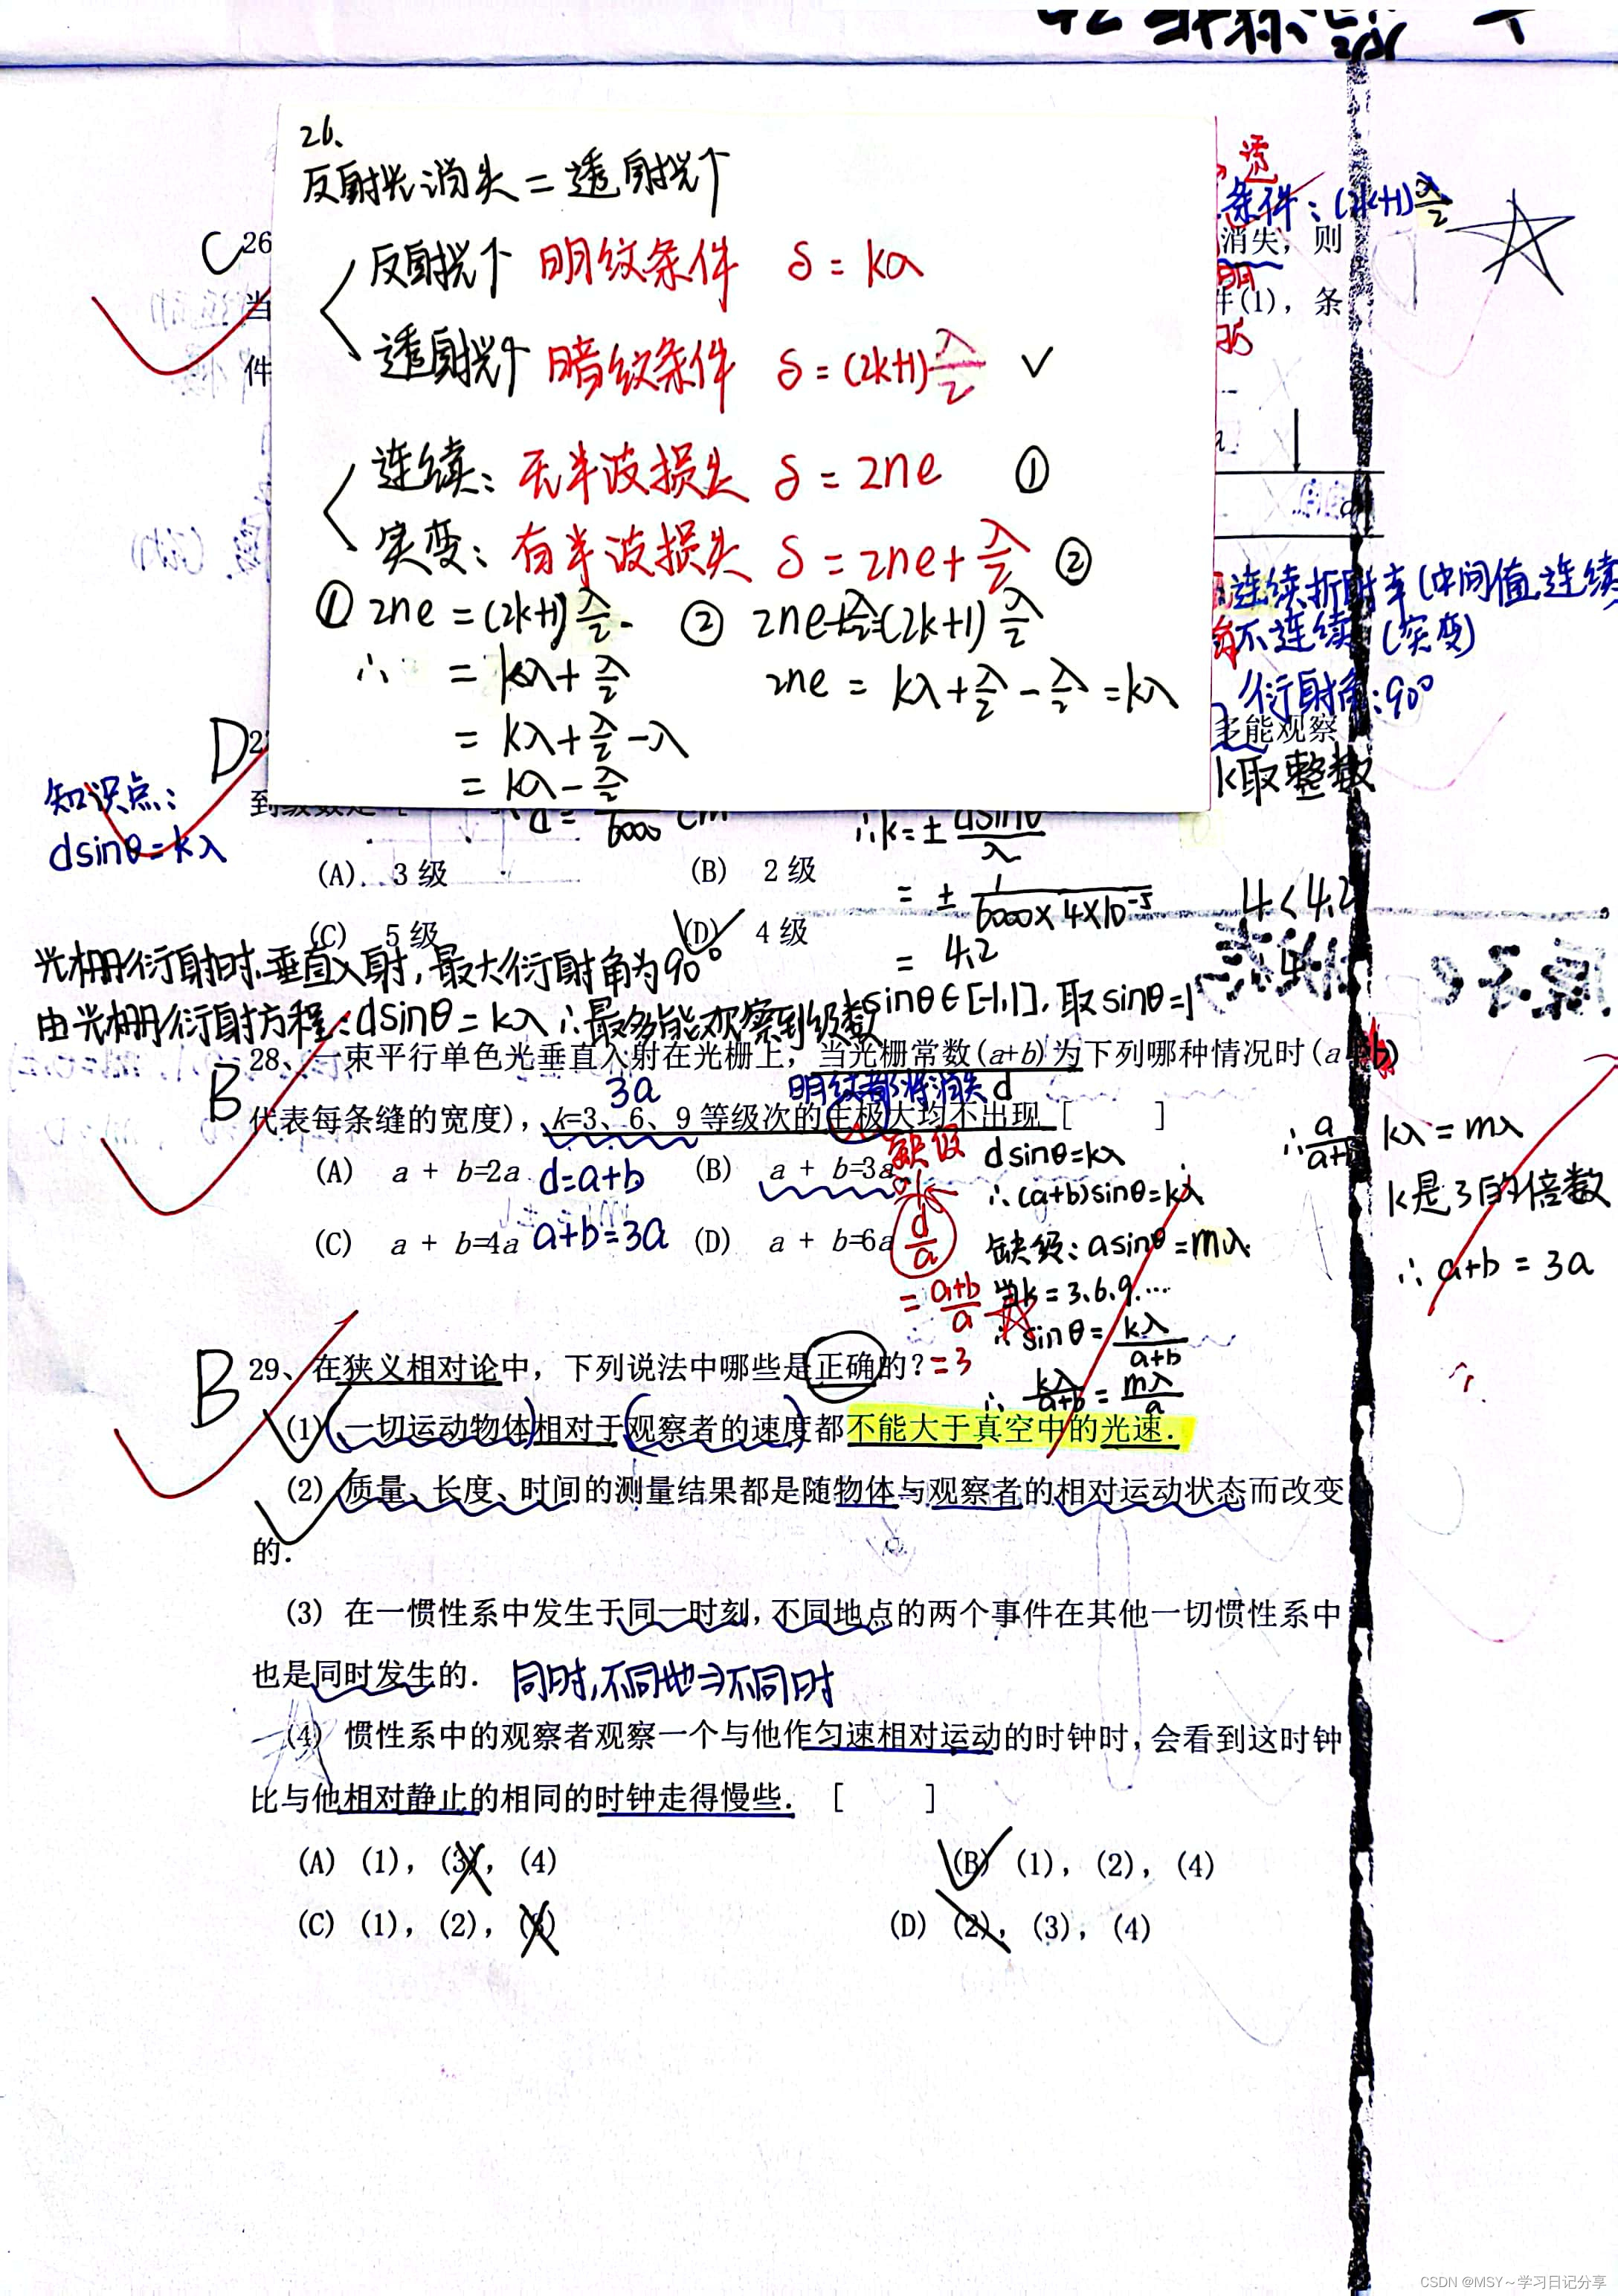 26、
反射光消失=透射光↑
反射光↑ 明纹条件 δ=kλ
透射光↑ 暗纹条件 δ=(2k+1)λ/2 ✓
连续：无半波损失 δ=2ne ①
突变：有半波损失 δ=2ne+λ/2 ②
① 2ne=(2k+1)λ/2 ② 2ne+λ/2=(2k+1)λ/2
∴ =kλ+λ/2 2ne=kλ+λ/2-λ/2=kλ
=kλ+λ/2-λ
=kλ-λ/2
C 26
透
条件：(2k+1)λ/2
消失，则
明
当
件(1)，条
件
连续折射率(中间值.连续)
不连续(突变)
衍射角:90°
D 2
多能观察
k取整数
知识点：
dsinθ=kλ
d=1/6000 cm
∴k=±dsinθ/λ
(A) 3级 (B) 2级
=±1/(6000×4×10⁻⁵)
4<4.2
(C) 5级 (D) 4级
=4.2
∴4
光栅衍射时.垂直入射,最大衍射角为90°
由光栅衍射方程:dsinθ=kλ∴最多能观察到级数
sinθ∈[-1,1],取sinθ=1
B 28、一束平行单色光垂直入射在光栅上，当光栅常数(a+b)为下列哪种情况时(a
3a 明纹都将消失 d
代表每条缝的宽度)，k=3、6、9等级次的主极大均不出现[ ]
缺级
(A) a + b=2a d=a+b (B) a + b=3a
(C) a + b=4a a+b=3a (D) a + b=6a
d/a
=(a+b)/a
=3
dsinθ=kλ
∴(a+b)sinθ=kλ
缺级：asinθ=mλ
当k=3、6、9…
∴sinθ=kλ/(a+b)
∴kλ/(a+b)=mλ/a
∴a/(a+b) kλ=mλ
k是3的倍数
∴a+b=3a
B 29、在狭义相对论中，下列说法中哪些是正确的？
(1) 一切运动物体相对于观察者的速度都不能大于真空中的光速．
(2) 质量、长度、时间的测量结果都是随物体与观察者的相对运动状态而改变
的．
(3) 在一惯性系中发生于同一时刻，不同地点的两个事件在其他一切惯性系中
也是同时发生的． 同时,不同地⇒不同时
(4) 惯性系中的观察者观察一个与他作匀速相对运动的时钟时，会看到这时钟
比与他相对静止的相同的时钟走得慢些．[ ]
(A) (1)，(3)，(4) (B) (1)，(2)，(4)
(C) (1)，(2)，(3) (D) (2)，(3)，(4)
CSDN @MSY～学习日记分享